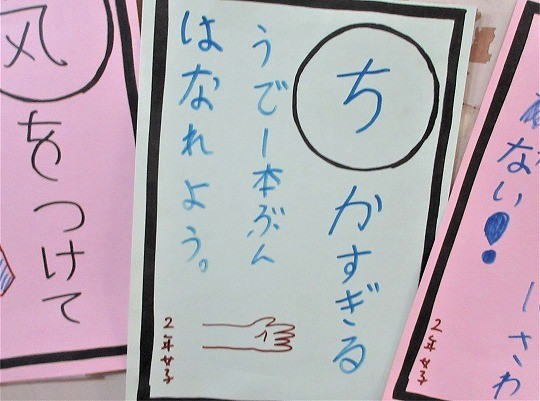 ちかすぎる
うで一本ぶん
はなれよう。
2年女子
気をつけて
ない!
にさわ
2年女子